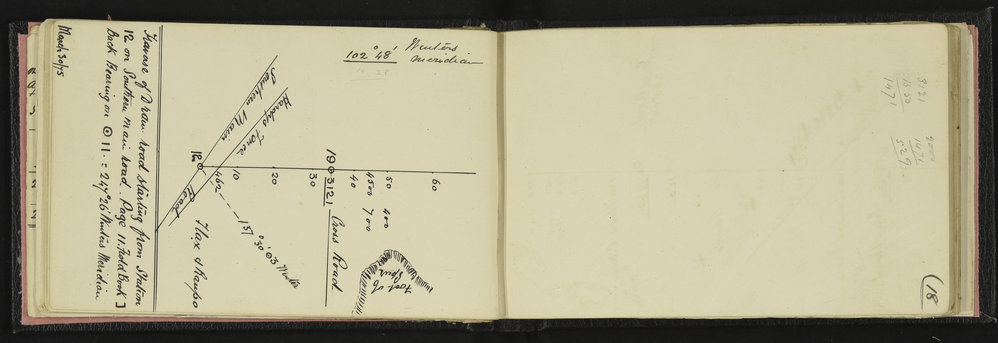 March 30/75
Traverse of Drain road starting from Station
12 on Southern main road. Page 11. Field Book]
Back Bearing on ⊙ 11. = 247°26' Winters Meridian
102° 48' Winters
Meridian
Southern Main
Road
Hardys Fence
12
462
10
20
30
1903121
40
4500 700
50 400
60
Cross Road
Foot of
Spur
151°30' ⊙3 Winter
Flax & Raupo
3121
1650
1471
2000
1471
529
(18